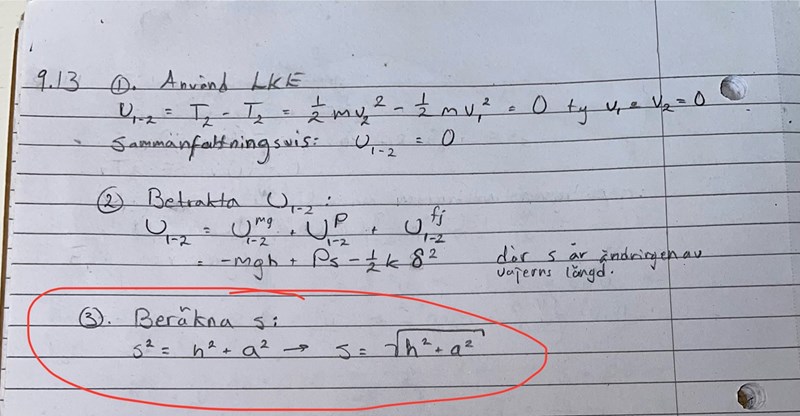 9.13 ①. Använd LKE
U₁₋₂ = T₂ - T₂ = ½ mv₂² - ½ mv₁² = 0 ty v₁ = v₂ = 0
Sammanfattningsvis: U₁₋₂ = 0
② Betrakta U₁₋₂:
U₁₋₂ = U₁₋₂^mg + U₁₋₂^P + U₁₋₂^fj
= -mgh + Ps - ½ k δ² där s är ändringen av
vajerns längd.
③. Beräkna s:
s² = h² + a² → s = √(h² + a²)